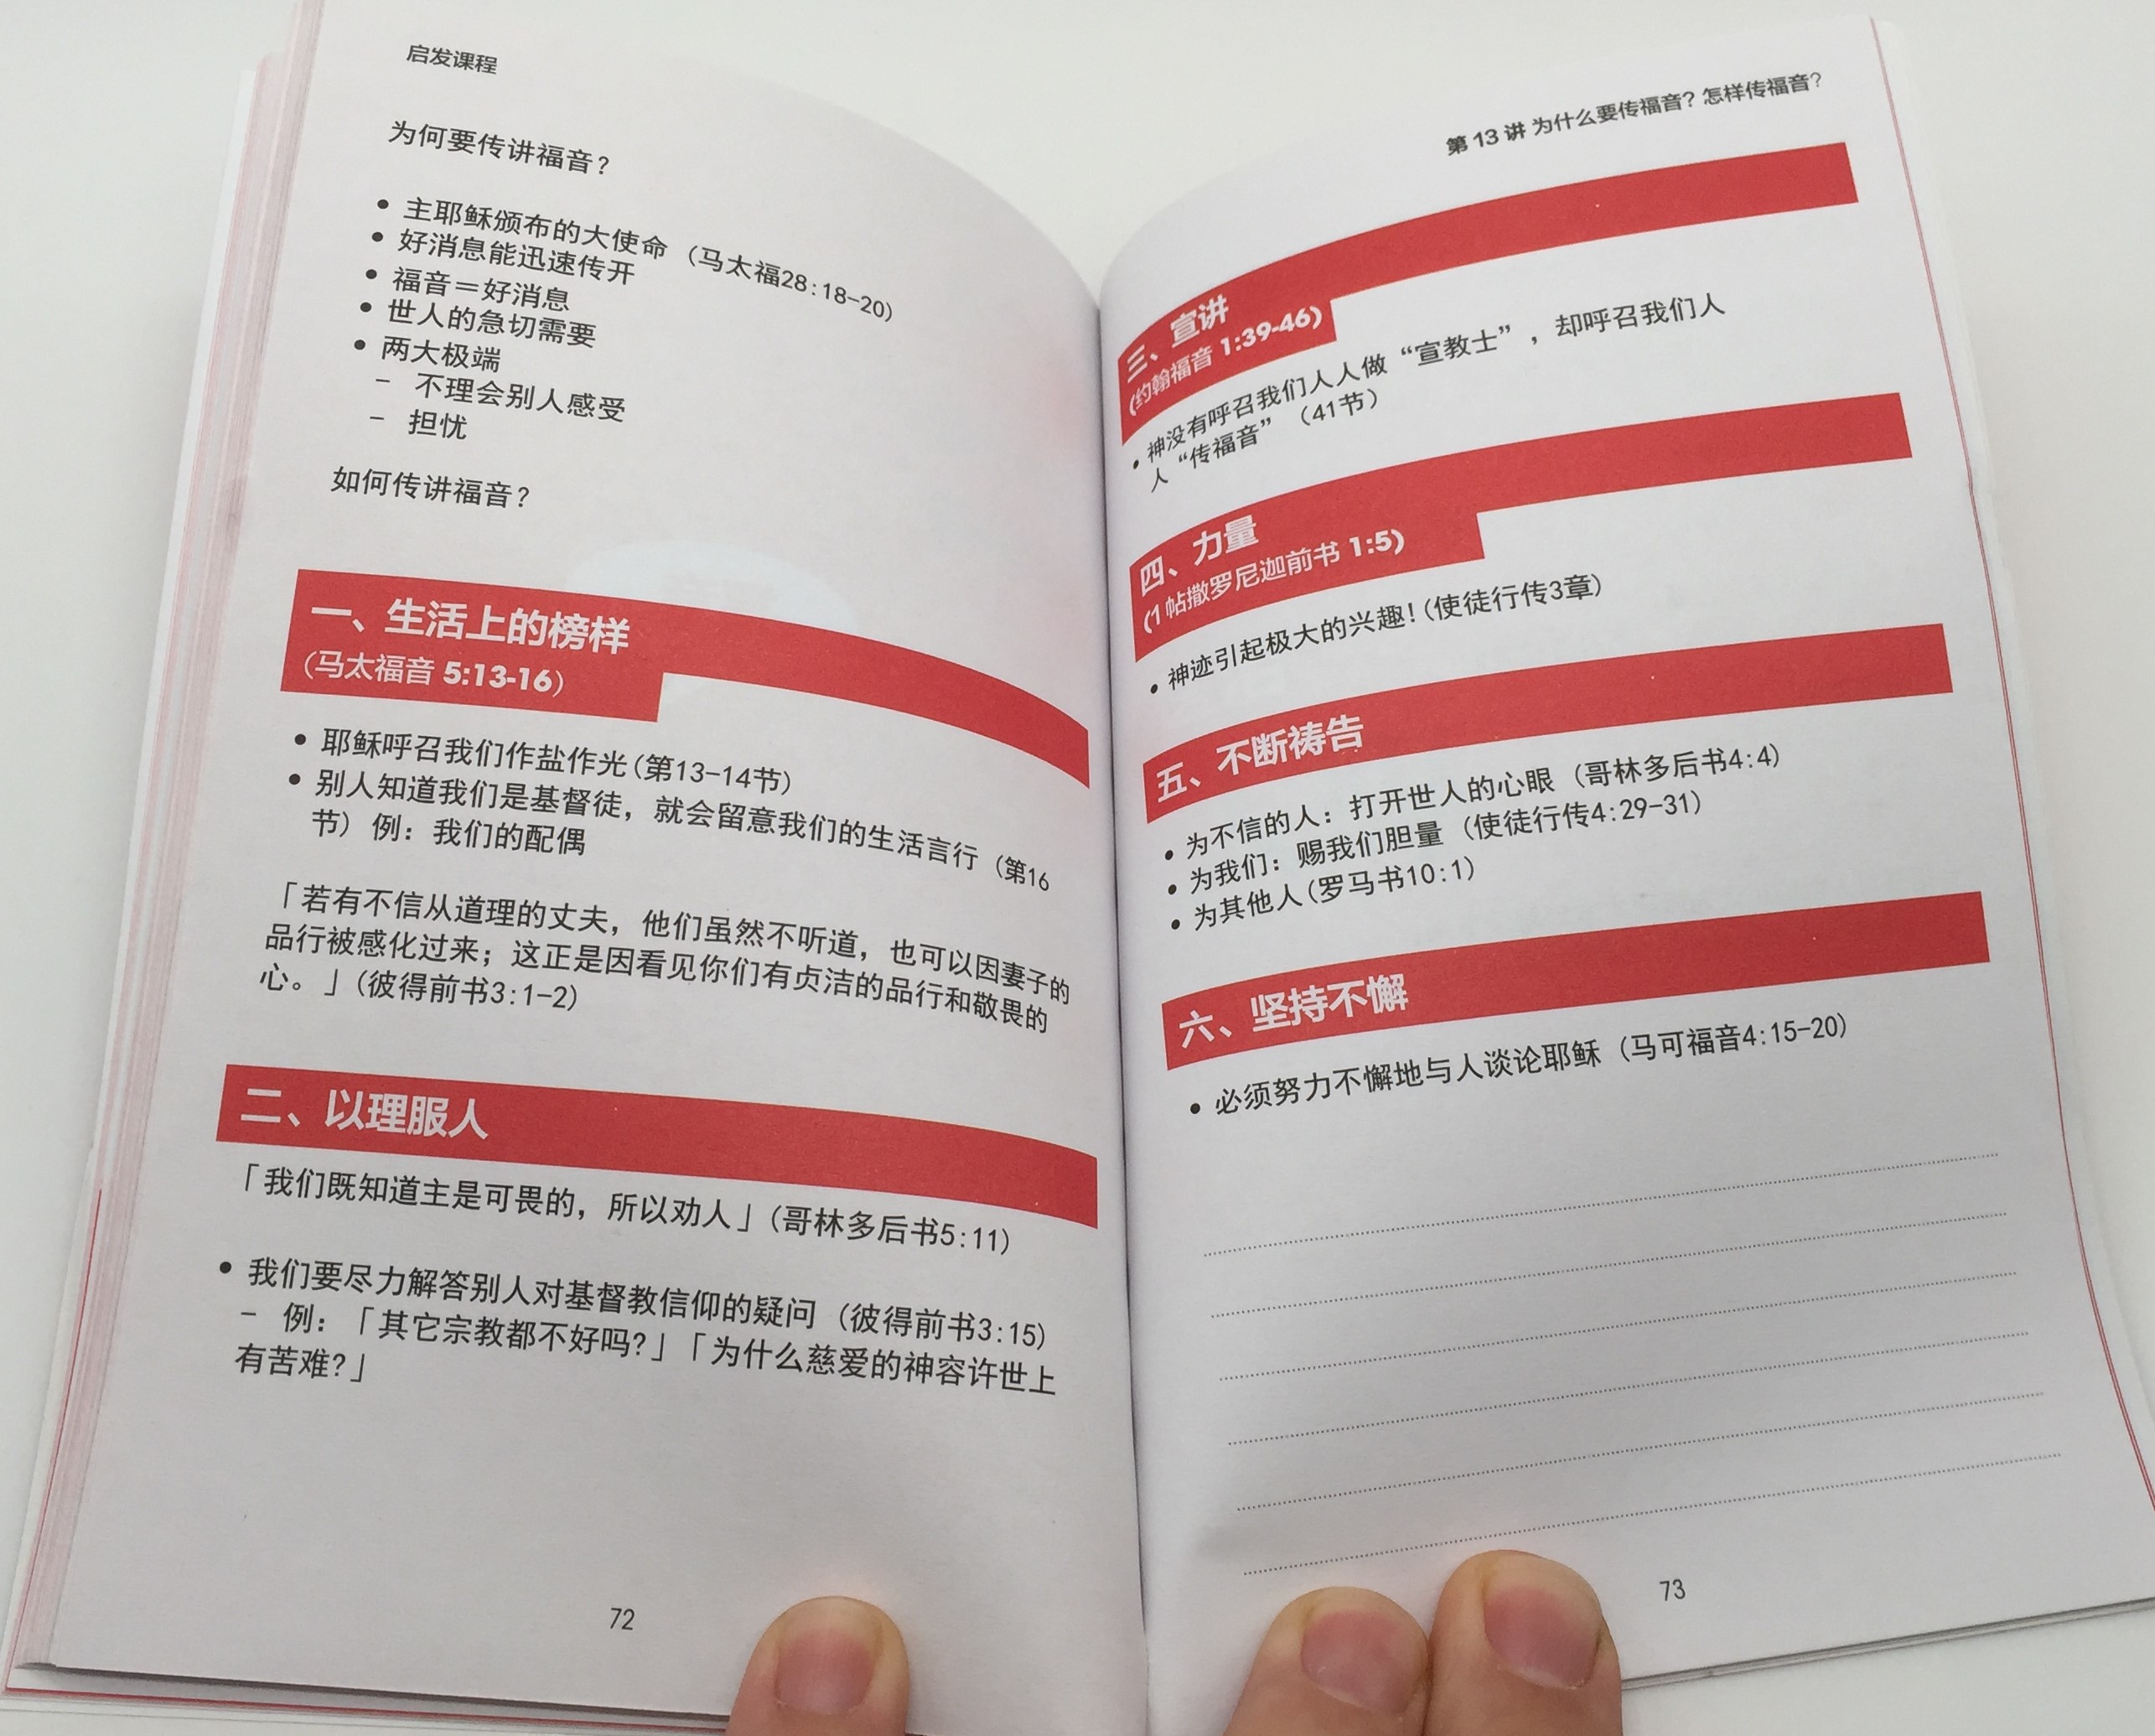 启发课程
为何要传讲福音？
• 主耶稣颁布的大使命（马太福28:18-20）
• 好消息能迅速传开
• 福音＝好消息
• 世人的急切需要
• 两大极端
- 不理会别人感受
- 担忧
如何传讲福音？
一、生活上的榜样
（马太福音 5:13-16）
• 耶稣呼召我们作盐作光(第13-14节)
• 别人知道我们是基督徒，就会留意我们的生活言行（第16
节）例：我们的配偶
「若有不信从道理的丈夫，他们虽然不听道，也可以因妻子的
品行被感化过来；这正是因看见你们有贞洁的品行和敬畏的
心。」(彼得前书3:1-2)
二、以理服人
「我们既知道主是可畏的，所以劝人」(哥林多后书5:11)
• 我们要尽力解答别人对基督教信仰的疑问（彼得前书3:15）
- 例：「其它宗教都不好吗?」「为什么慈爱的神容许世上
有苦难?」
72
第 13 讲 为什么要传福音？怎样传福音？
三、宣讲
(约翰福音 1:39-46)
• 神没有呼召我们人人做“宣教士”，却呼召我们人
人“传福音”（41节）
四、力量
(1 帖撒罗尼迦前书 1:5)
• 神迹引起极大的兴趣!(使徒行传3章)
五、不断祷告
• 为不信的人：打开世人的心眼（哥林多后书4:4）
• 为我们：赐我们胆量（使徒行传4:29-31）
• 为其他人(罗马书10:1)
六、坚持不懈
• 必须努力不懈地与人谈论耶稣（马可福音4:15-20）
73